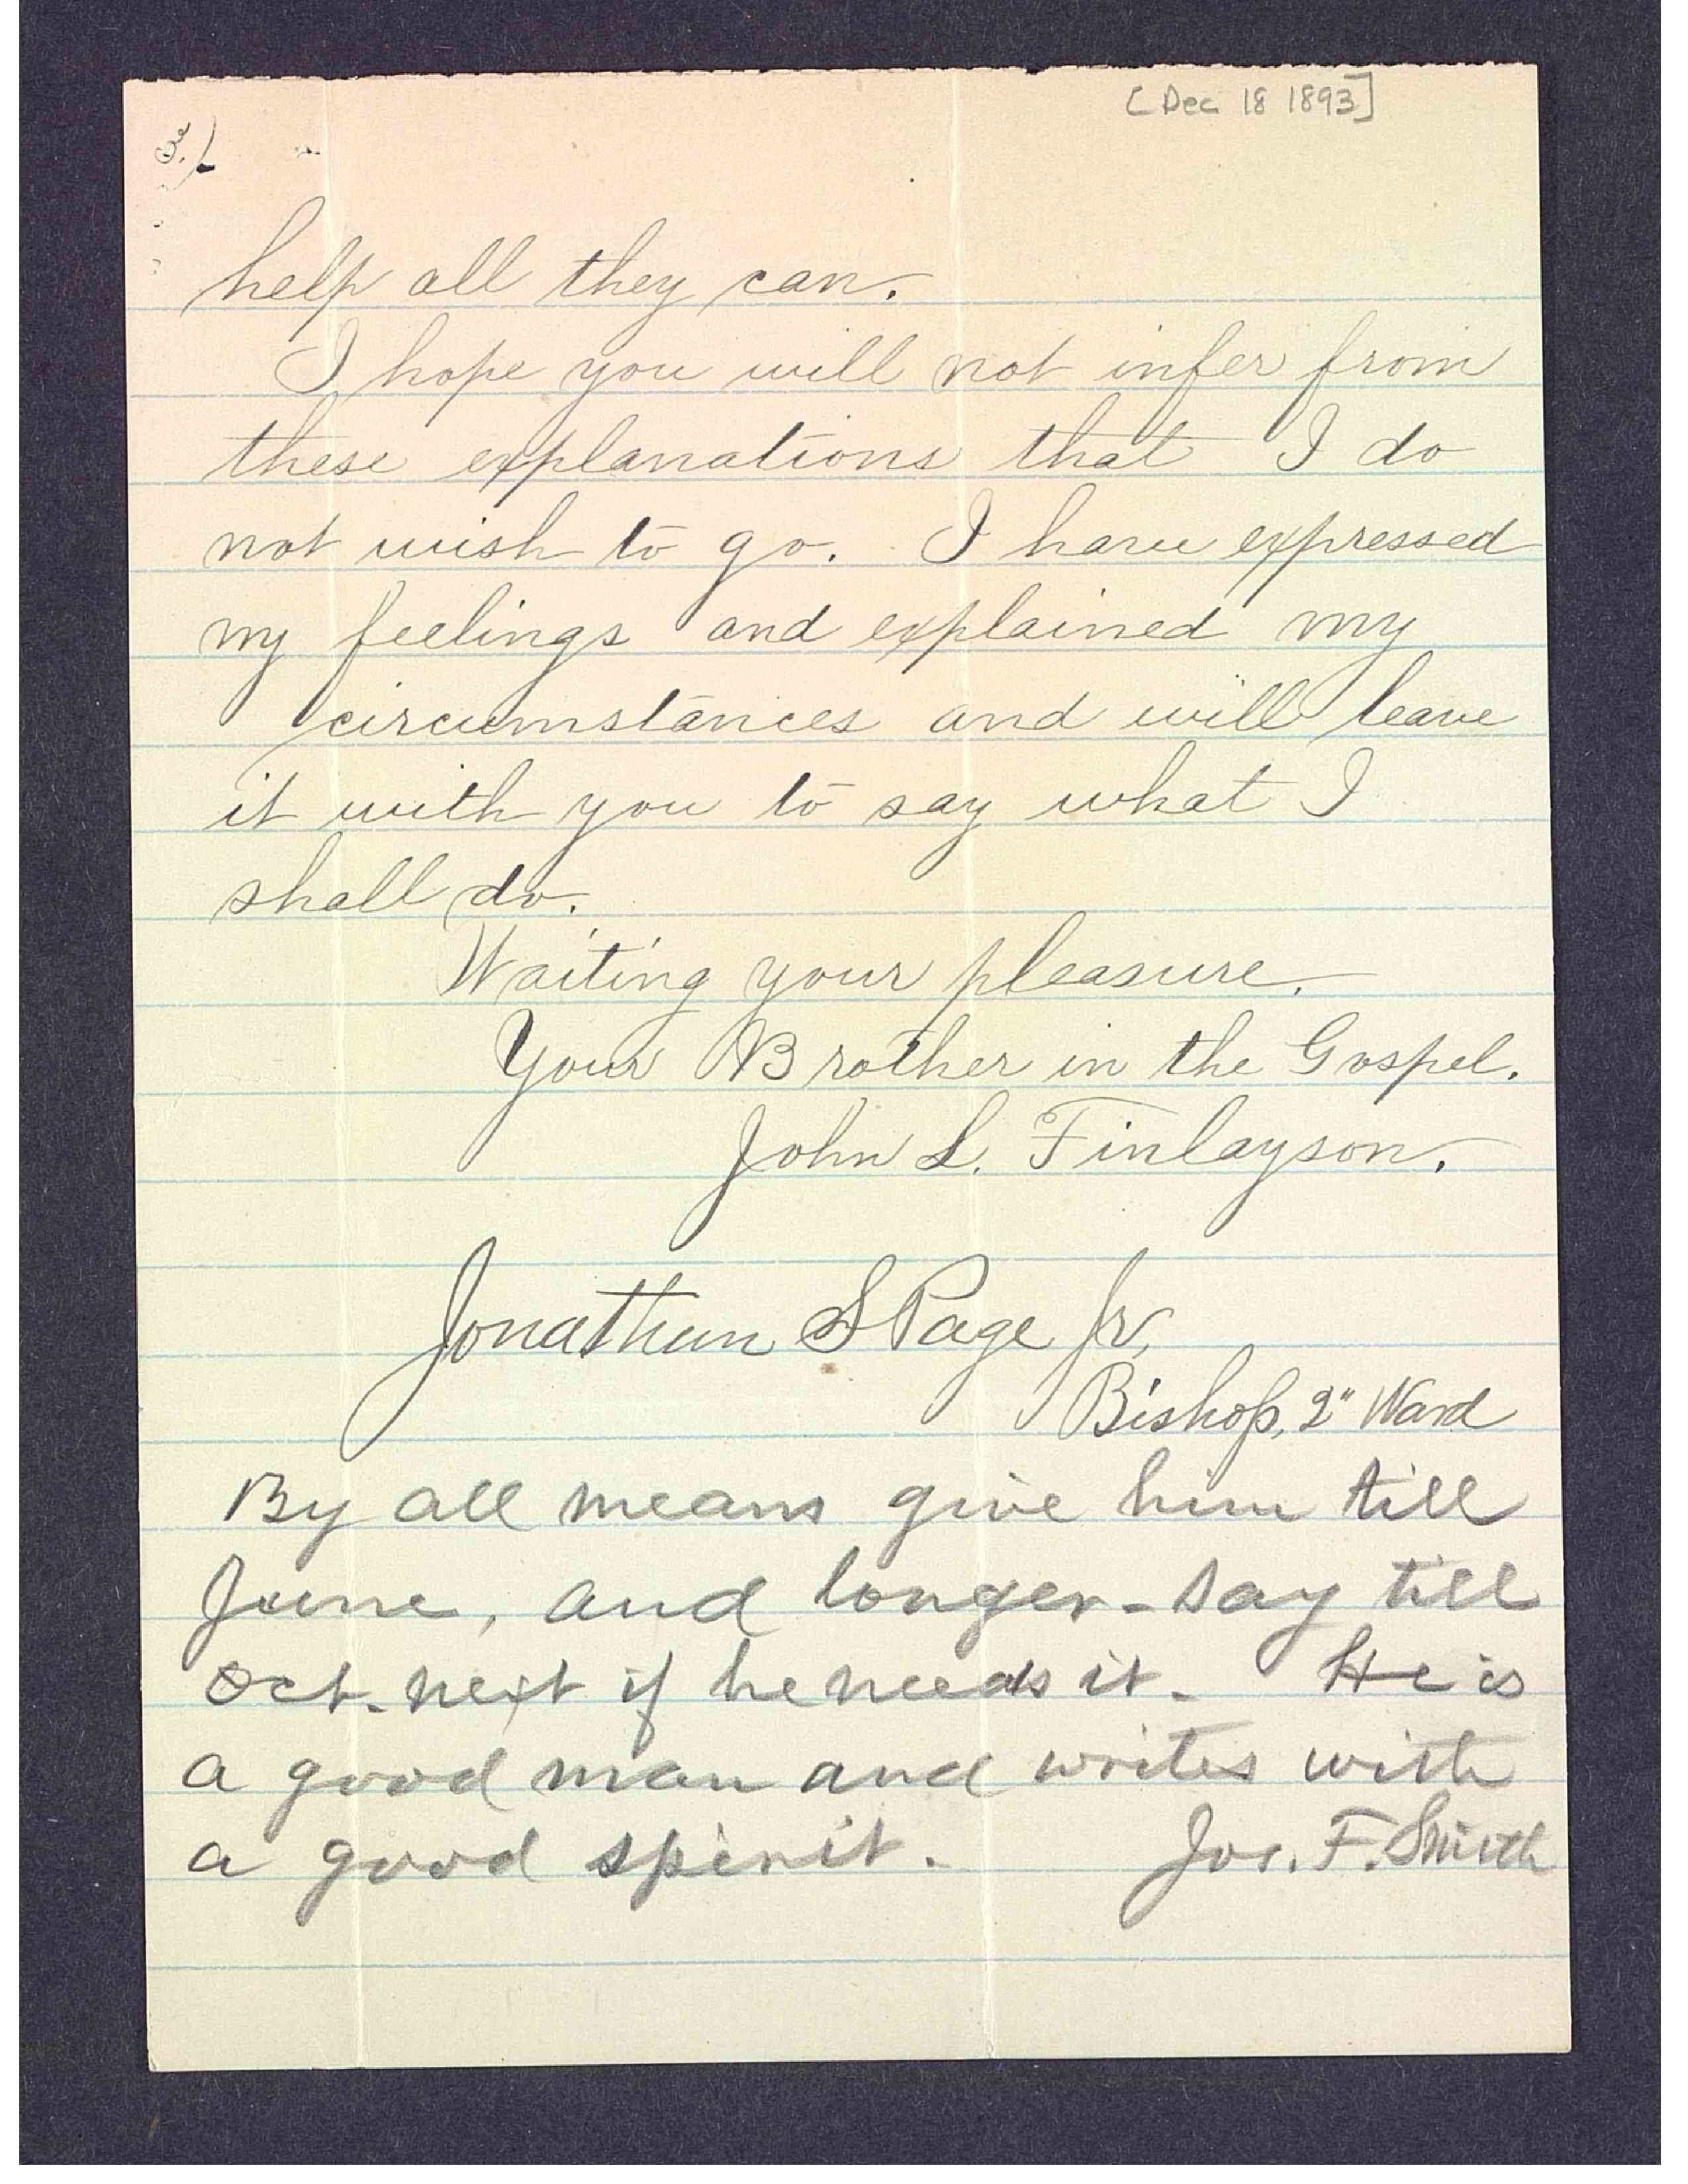 [Dec 18 1893]
help all they can.
I hope you will not infer from
these explanations that I do
not wish to go. I have expressed
my feelings and explained my
circumstances and will leave
it with you to say what I
shall do.
Waiting your pleasure.
Your Brother in the Gospel.
John L. Finlayson.
Jonathan S Page Jr,
Bishop, 2" Ward
By all means give him till
June, and longer - say till
Oct. next if he needs it. He is
a good man and writes with
a good spirit. Jos. F. Smith